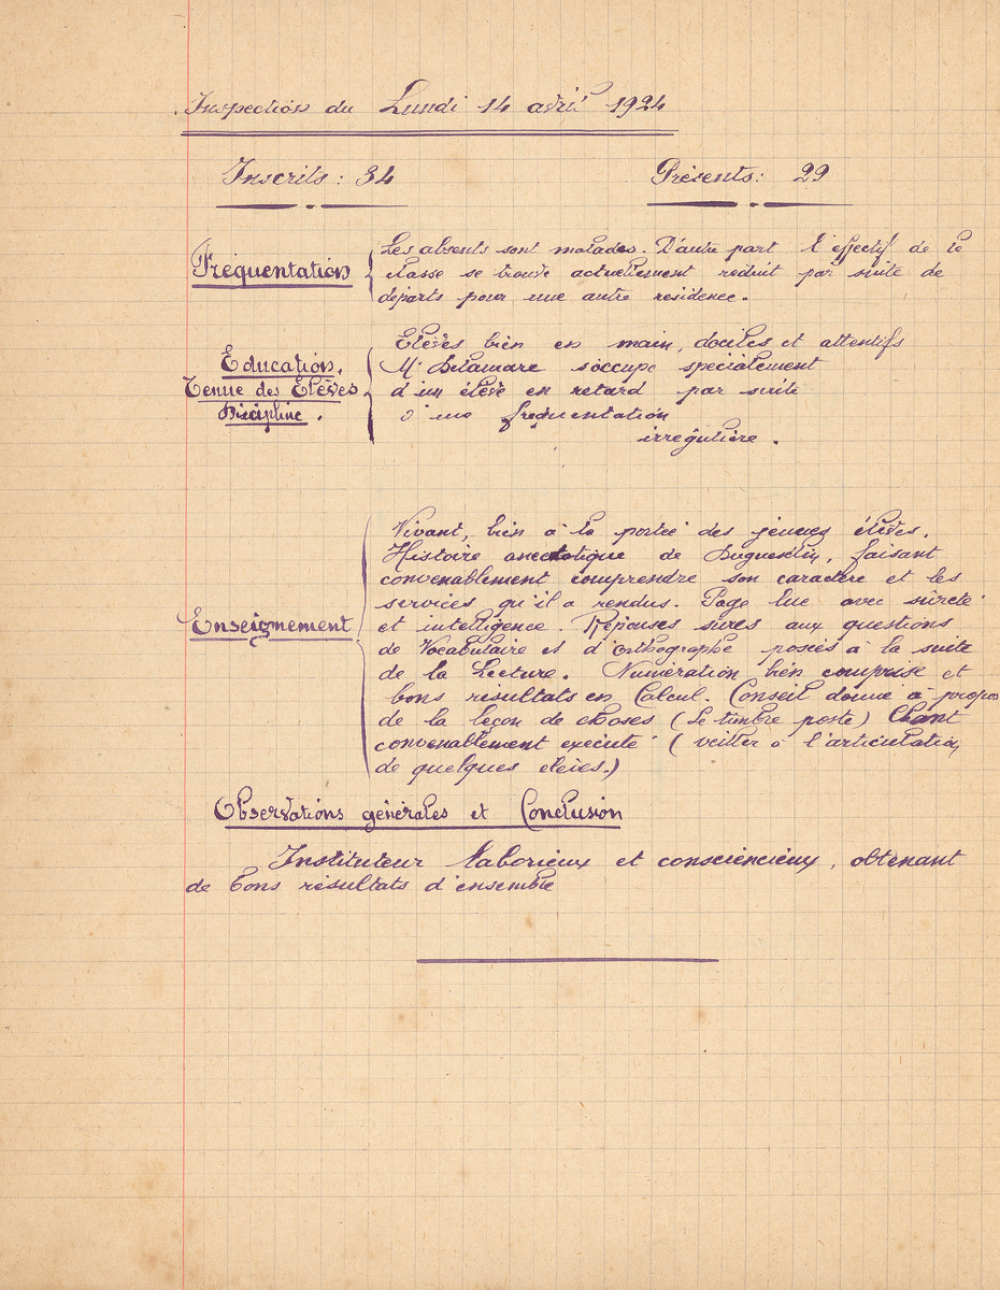 Inspection du Lundi 14 avril 1924
Inscrits : 34 Présents : 29
Fréquentation
Les absents sont malades. D'autre part l'effectif de la
classe se trouve actuellement réduit par suite de
départs pour une autre résidence.
Education.
Tenue des Elèves
Discipline.
Elèves bien en main, dociles et attentifs
Mr Delamare s'occupe spécialement
d'un élève en retard par suite
d'une fréquentation
irrégulière.
Enseignement
Vivant, bien à la portée des jeunes élèves.
Histoire anecdotique de Duguesclin, faisant
convenablement comprendre son caractère et les
services qu'il a rendus. Page lue avec sûreté
et intelligence. Réponses sûres aux questions
de Vocabulaire et d'Orthographe posées à la suite
de la Lecture. Numération bien comprise et
bons résultats en Calcul. Conseil donné à propos
de la leçon de choses (Le timbre poste) Chant
convenablement exécuté (veiller à l'articulation
de quelques élèves.)
Observations générales et Conclusion
Instituteur laborieux et consciencieux, obtenant
de bons résultats d'ensemble